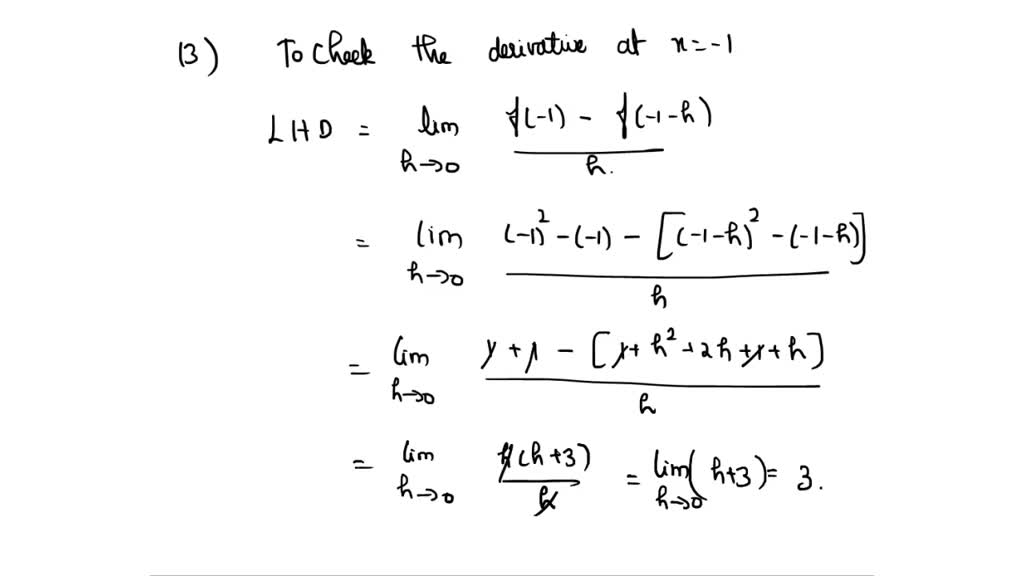 13) To Check the derivative at x=-1
LHD = lim h→0 f(-1) - f(-1-h) / h.
= lim h→0 (-1)² - (-1) - [(-1-h)² - (-1-h)] / h
= lim h→0 1 + 1 - [1 + h² + 2h + 1 + h] / h
= lim h→0 h(h+3) / h = lim h→0 (h+3) = 3.